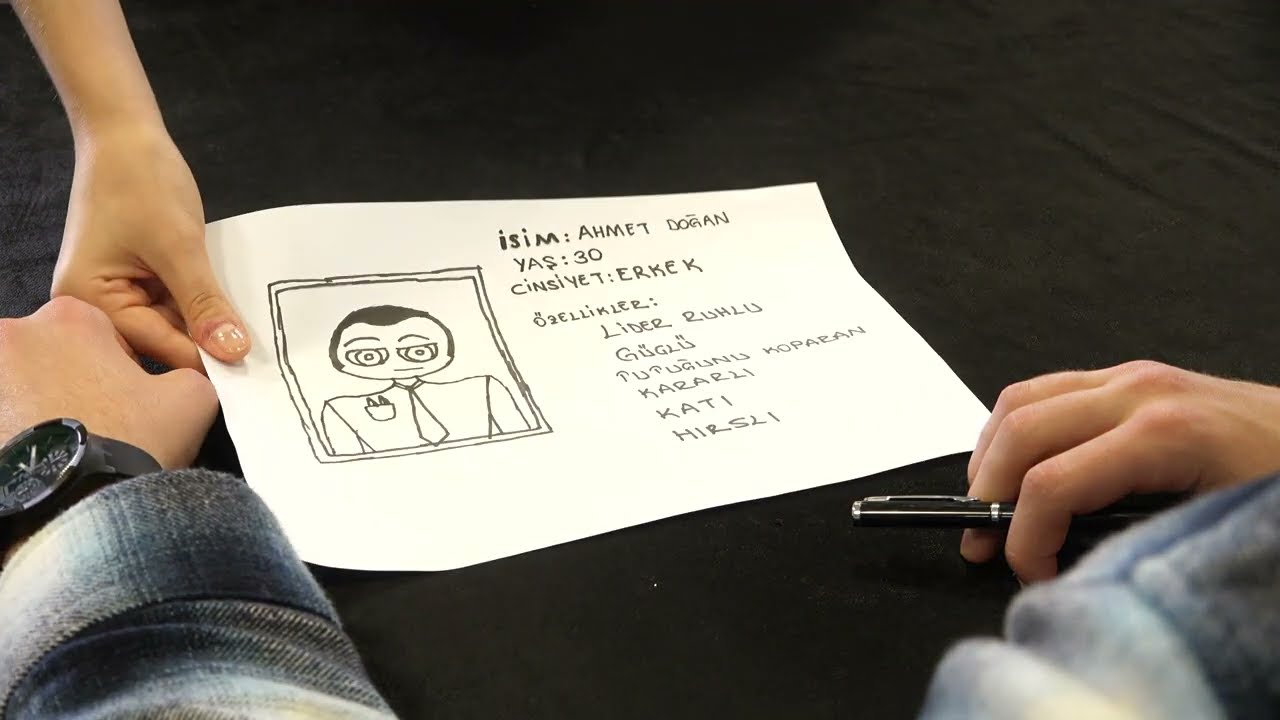 İSİM: AHMET DOĞAN
YAŞ: 30
CİNSİYET: ERKEK
ÖZELLİKLER:
LİDER RUHLU
GÜÇLÜ
TUTUĞUNU KOPARAN
KARARLI
KATI
HIRSLI